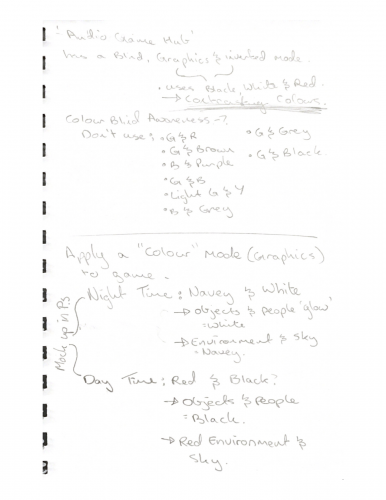 'Audio Game Hub'
has a Blind, Graphics & inverted mode.
• uses Black, White & Red.
→ Contrasting Colours.
Colour Blind Awareness -?
Don't use: • G & R
• G & Brown
• B & Purple
• G & B
• Light G & Y
• B & Grey
• G & Grey
• G & Black.
Apply a "Colour" Mode (Graphics)
to game.
Mock up in Ps
Night Time: Navey & White
→ Objects & People 'glow'
= White
→ Environment & Sky
= Navey.
Day Time: Red & Black?
→ Objects & People
= Black.
→ Red Environment &
Sky.